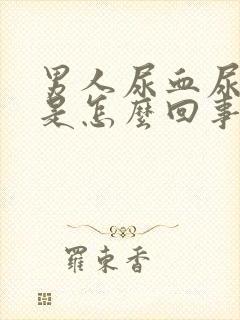 男人尿血尿
是怎麼回事
羅東香